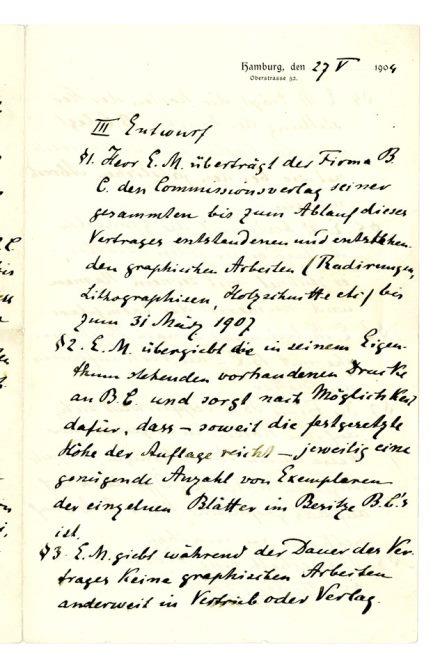 Hamburg, den 27 V 1904
Oberstrasse 82.
III Entwurf
§1. Herr E. M. überträgt der Firma B.
C. den Commissionsverlag seiner
gesammten bis zum Ablauf dieses
Vertrages entstandenen und entstehen-
den graphischen Arbeiten (Radirungen,
Lithographieen, Holzschnitte etc) bis
zum 31 März 1907
§2. E. M. übergiebt die in seinem Eigen-
thum stehenden vorhandenen Drucke
an B. C. und sorgt nach Möglichkeit
dafür, dass – soweit die festgesetzte
Höhe der Auflage reicht – jeweilig eine
genügende Anzahl von Exemplaren
der einzelnen Blätter im Besitze B.C.'s
ist.
§3. E. M. giebt während der Dauer des Ver-
trages keine graphischen Arbeiten
anderweit in Vertrieb oder Verlag.